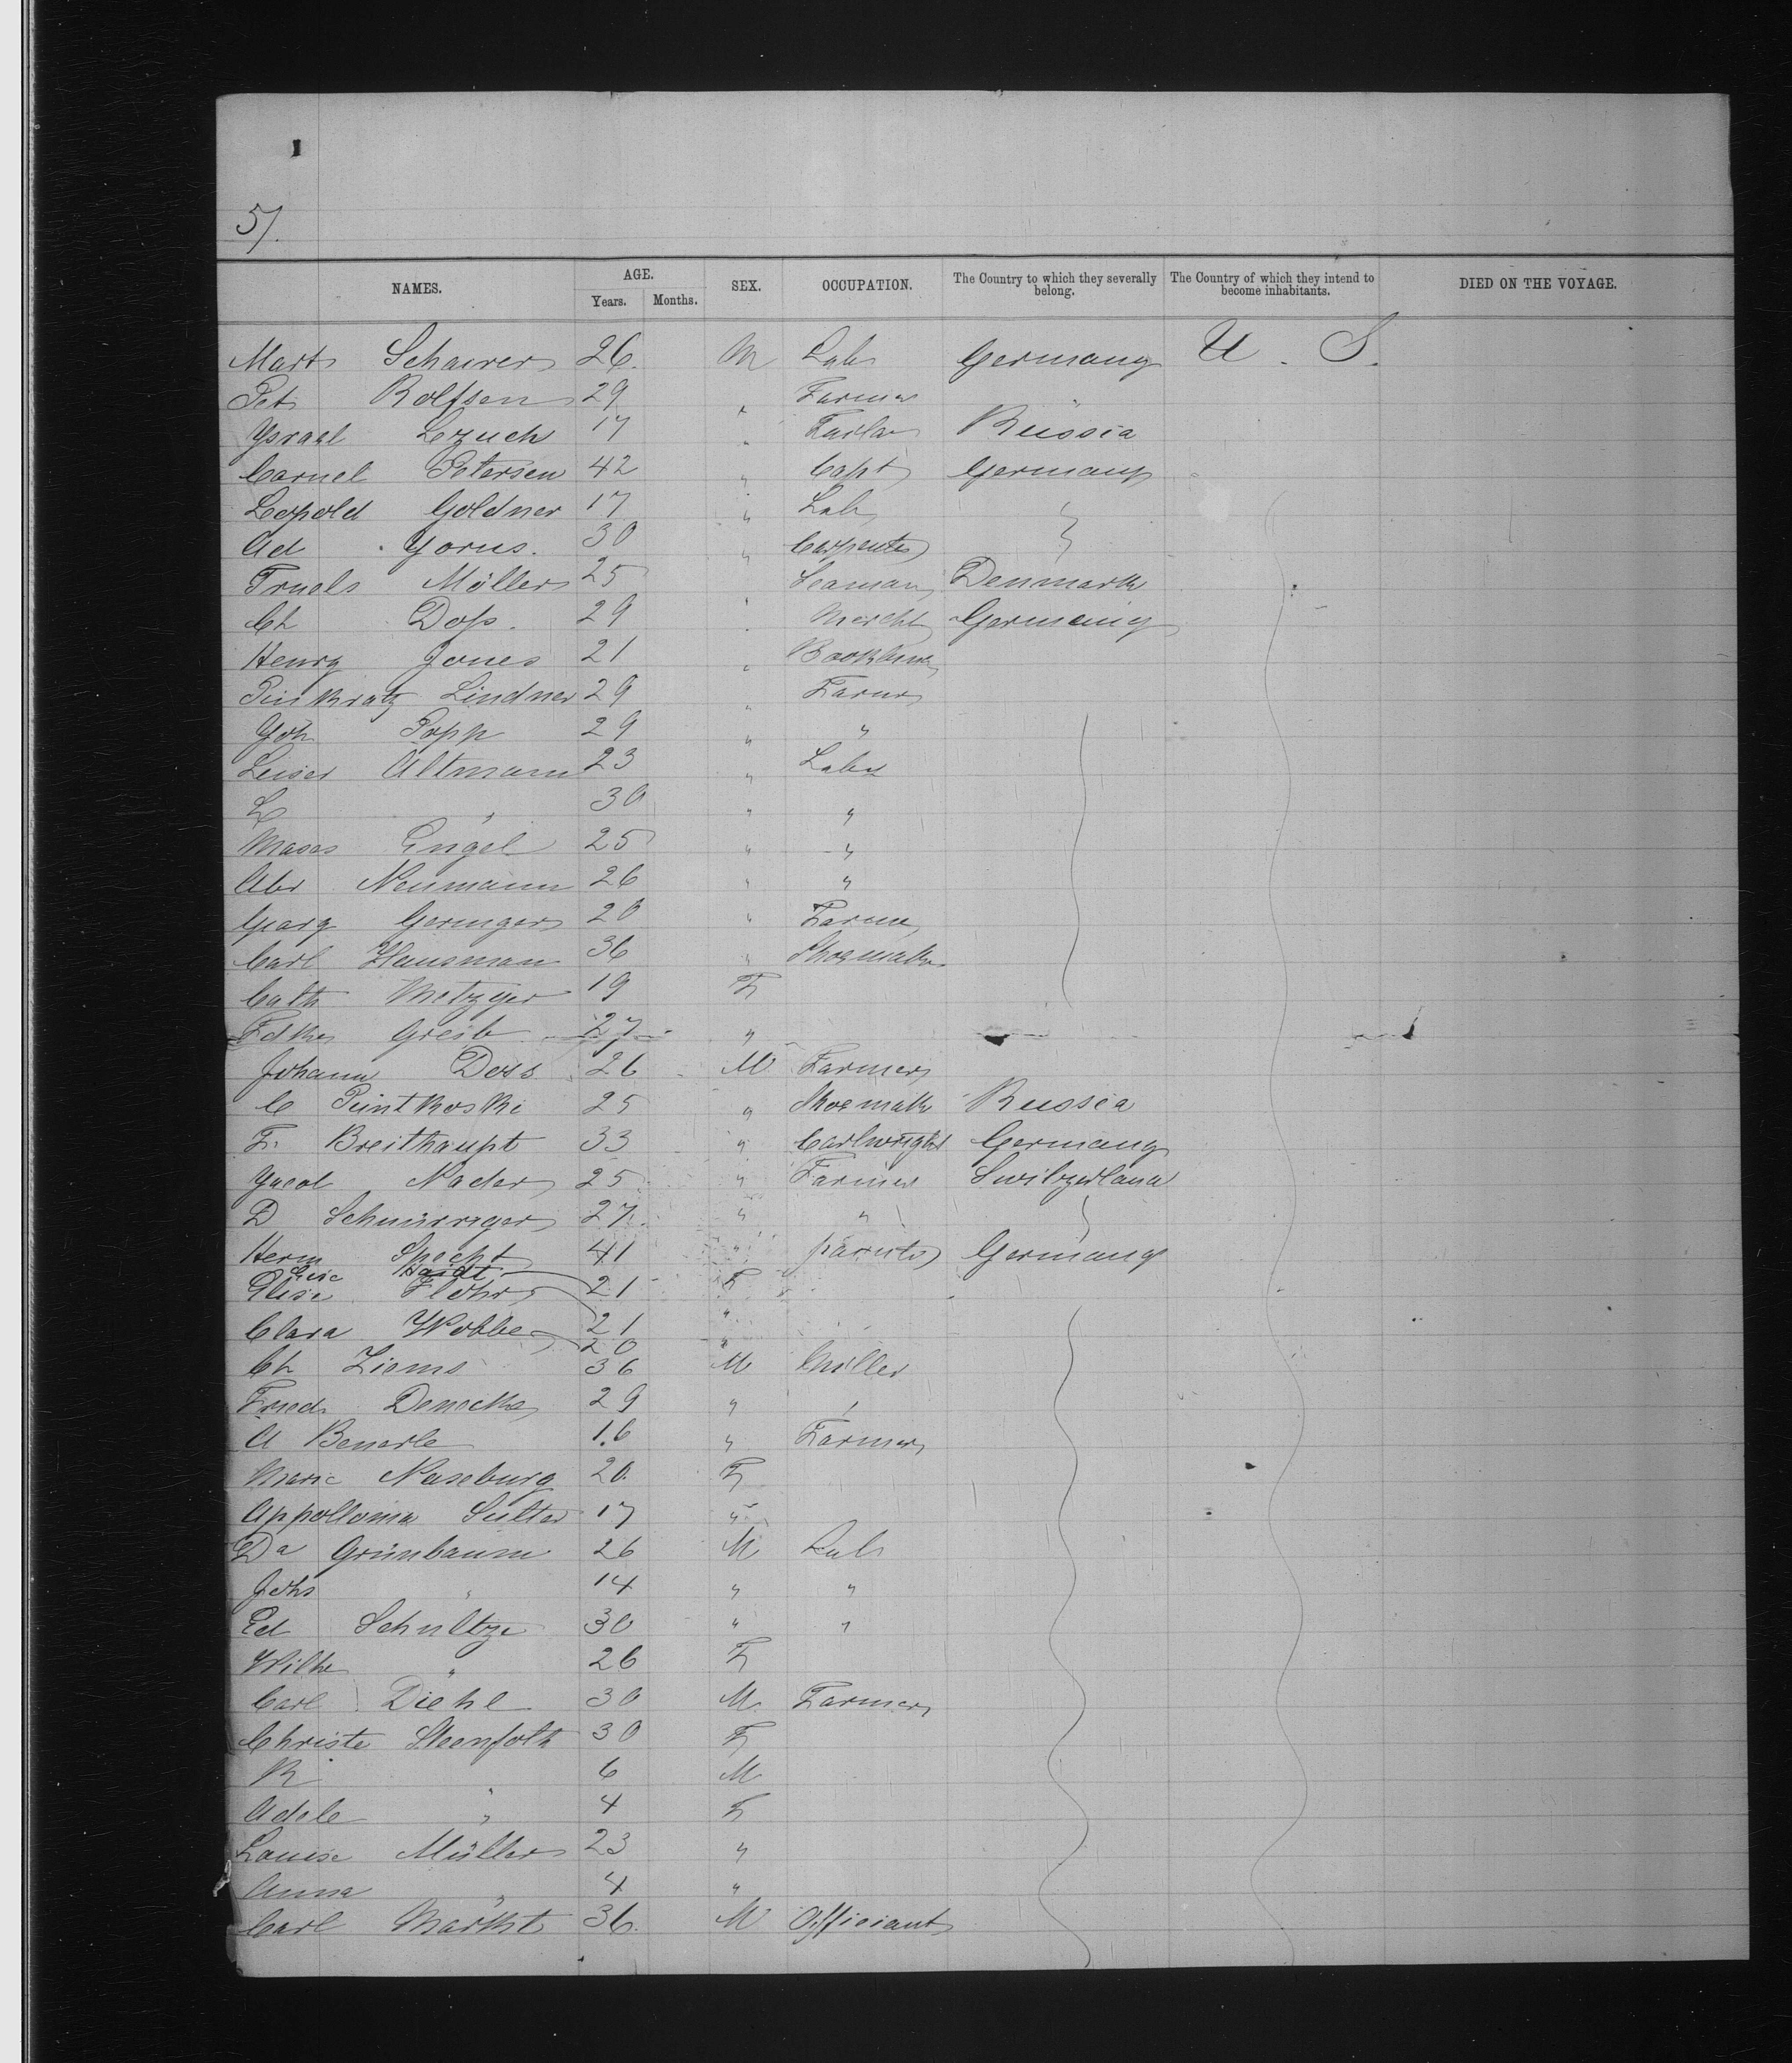 51.
NAMES. AGE. Years. Months. SEX. OCCUPATION. The Country to which they severally belong. The Country of which they intend to become inhabitants. DIED ON THE VOYAGE.
Mart Schairer 26. M Lab Germany U. S.
Pet Rolfsen 29 " Farmer
Ysrael Lzuch 17 " Tailor Russia
Cornel Petersen 42 " Capt Germany
Leopold Goldner 17 " Lab
Ad Yorus. 30 " Carpenter
Truels Möller 25 Seaman Denmark
Ch Doss. 29 Mercht Germany
Henry Jones 21 "
Pinkratz Lindner 29 " Farmer
Joh Popp 29 " "
Leiser Altmann 23 " Labr
L " 30 " "
Moses Engel 25 " "
Abr Neumann 26 " "
Georg Geringer 20 " Farmer
Carl Hausman 36 " Shoemaker
Cath Metzger 19 F
Greib 27 "
Johann Doss 26 M Farmer
C Pintkoski 25 " Shoemaker Russia
F. Breithaupt 33 " Cartwright Germany
Jacob Nader 25 " Farmer Switzerland
D Schnürriger 27. " "
Herm Specht 41 " painter Germany
Haidt
Elise Flohr 21 F
Clara Wobbe 21 "
20 "
Ch Ziems 36 M Miller
Fried Denecke 29 " "
A Beuerle 16 " Farmer
Marie Naseburg 20. F
Appollonia Sutter 17 "
Da Grünbaum 26 M Lab
Johs " 14 " "
Ed Schultze 30 " "
Wilhe " 26 F
Carl Diehl 30 M Farmer
Christe Steenfoth 30 F
R " 6 M
Adele " 4 F
Louise Müller 23 "
Anna " 4 "
Carl Markt 36. M Officiant